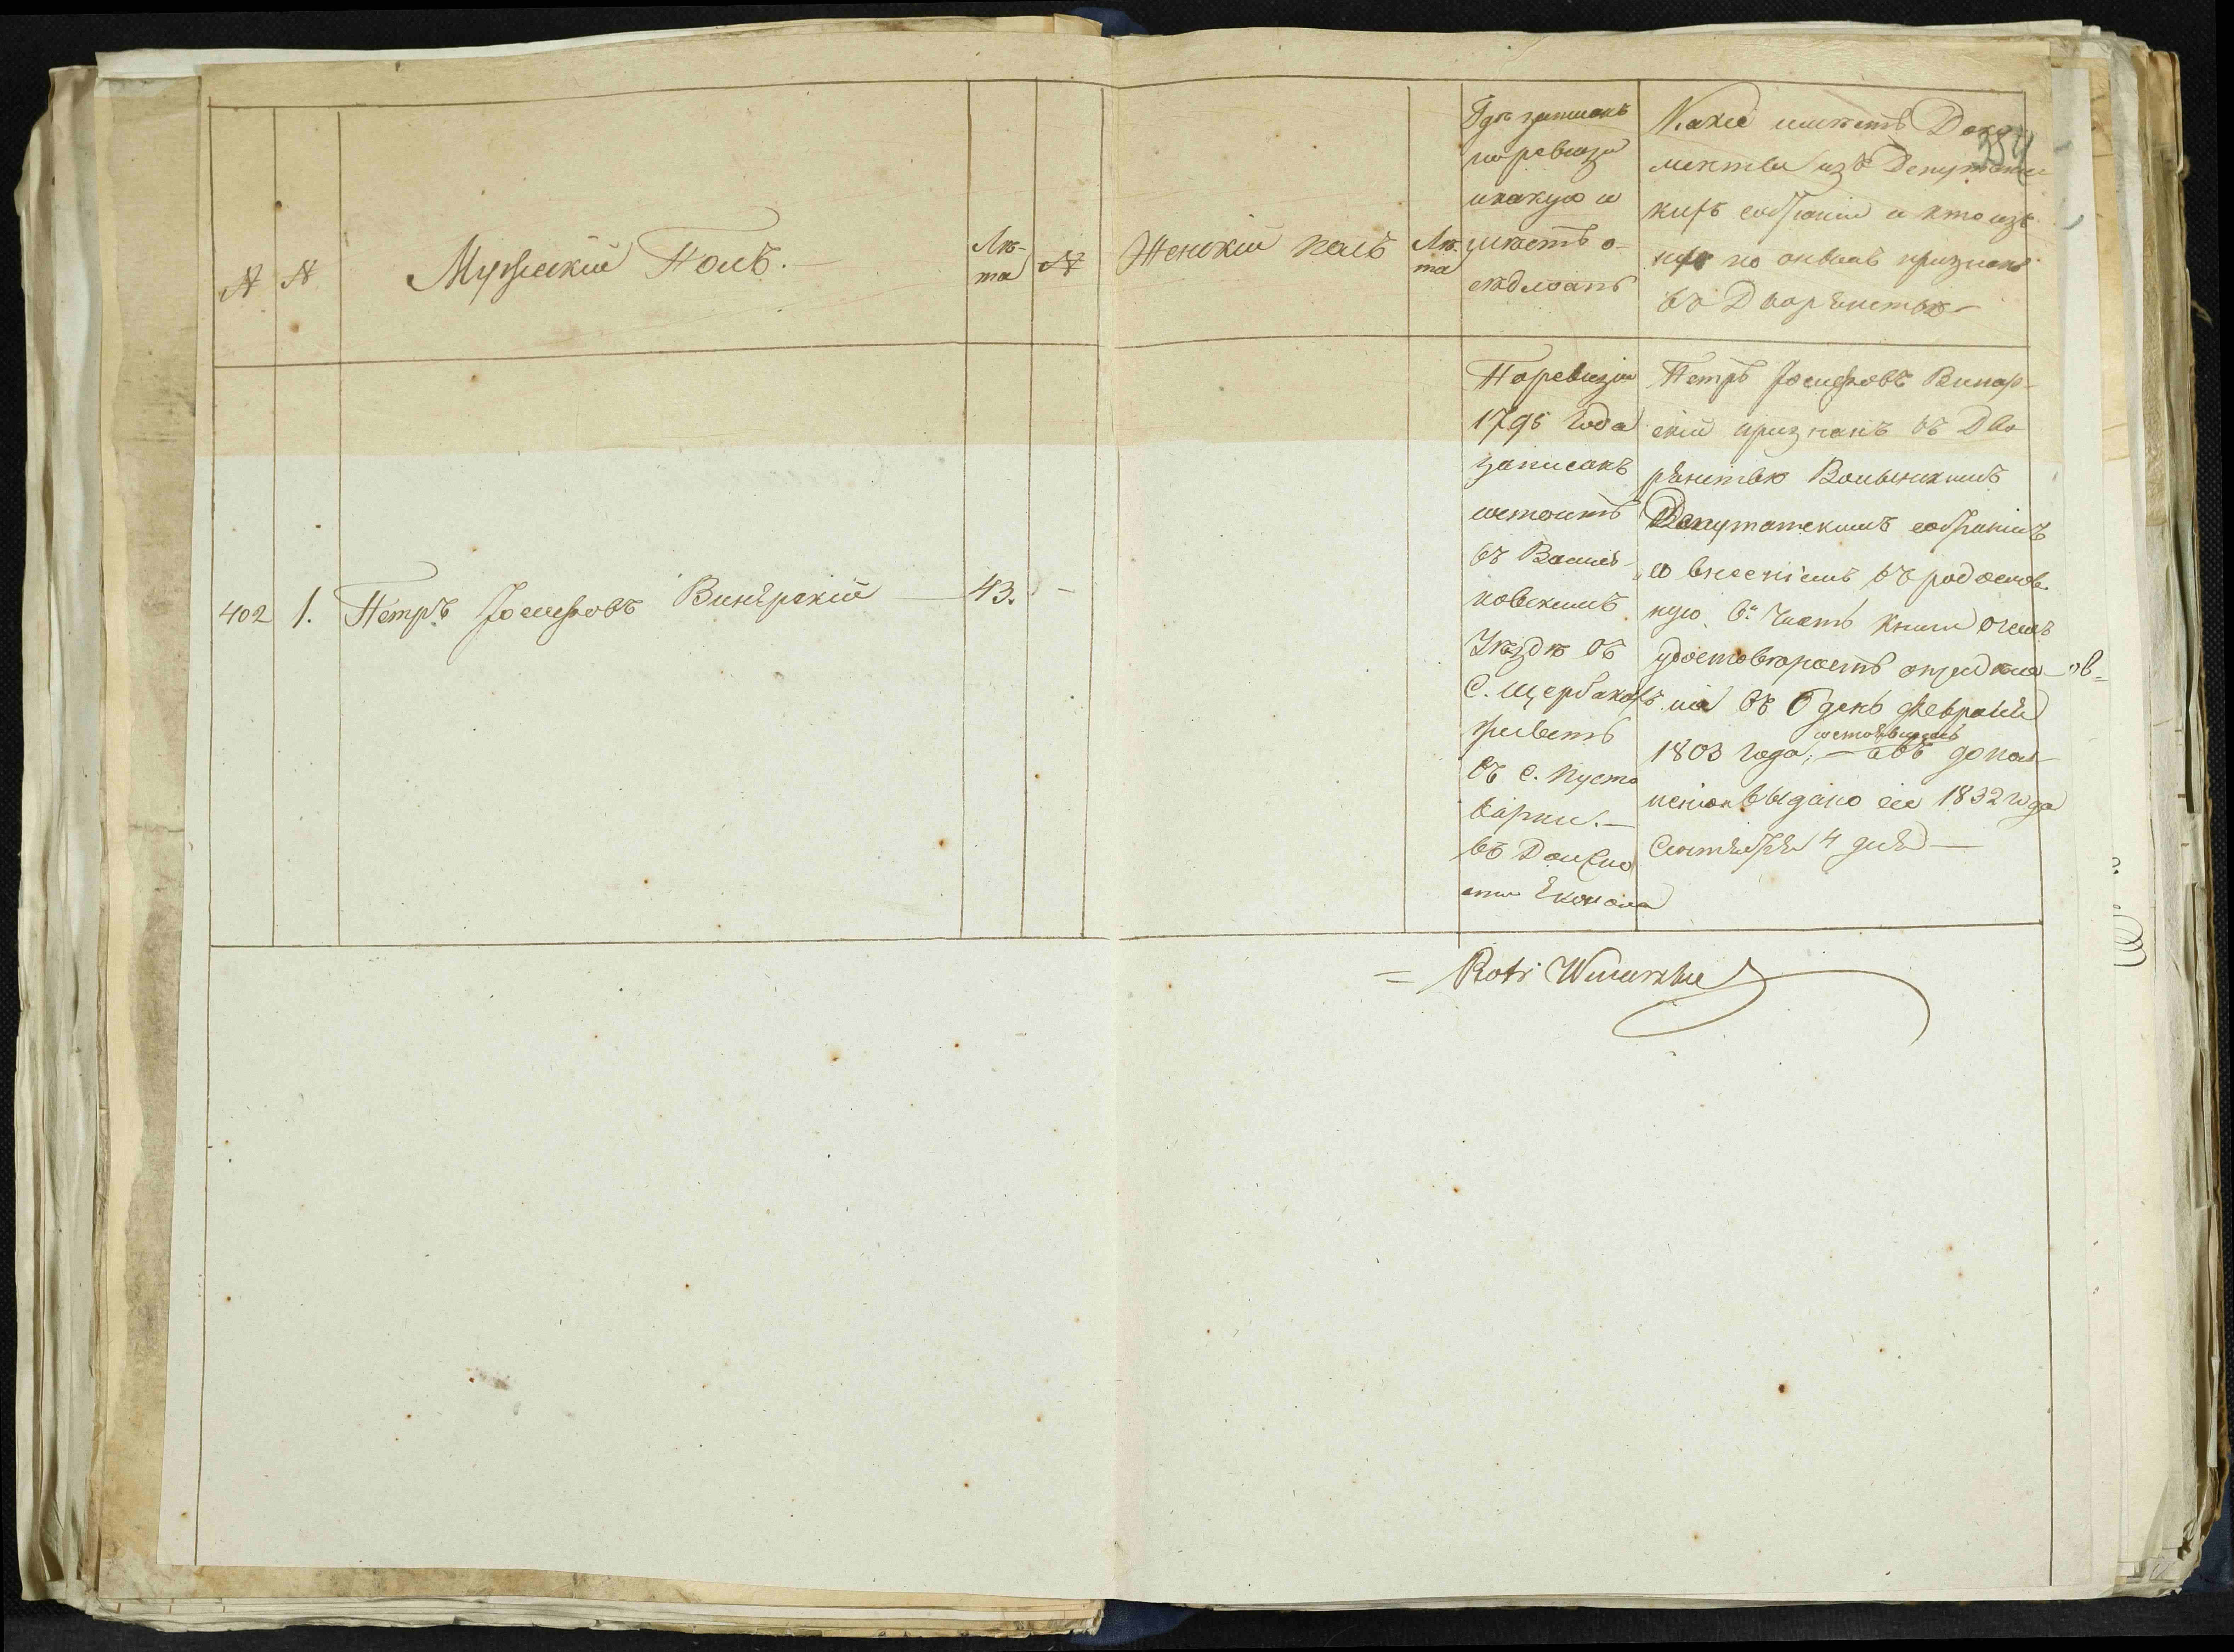 384
N
N
Мужеский Полъ.
Лѣ-
та
N
Женский полъ
Лѣ-
та
Где записанъ
поревизи
икакую и
имѣетъ о-
седлость
Какие имѣетъ Доку-
менты изъ Депутатс-
кихъ собраний и кто изъ
нихъ по онымъ признанъ
въ Дворянстве
402
1.
Петръ Іосифовъ Винярский
43.
Поревизии
1795 года
записанъ
состоитъ
въ Василь-
ковскимъ
Уѣзде въ
С. Щербакахъ
живетъ
въ С. Пусто
варни.
въ Должно
сти Економа
Петръ Іосифовъ Винар-
ский признанъ въ Дво
рянстве Волынскимъ
Депутатскимъ собраниемъ
со внесеніемъ въ родослов-
ную 6ю часть книги очемъ
удостоверяетъ определе-
ніе въ 6 день февраля
1803 года, состоявшеесь въ допол-
неніе выдано ее 1832 года
Сентября 4 дня
Piotr Winiarski